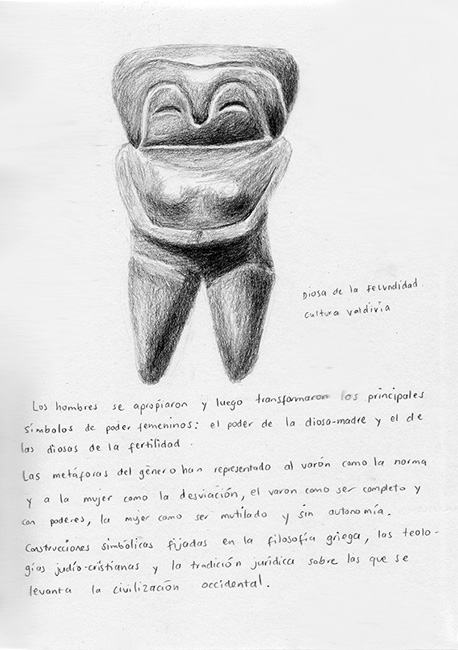 Diosa de la fecundidad.
Cultura valdivia
Los hombres se apropiaron y luego transformaron los principales
símbolos de poder femeninos: el poder de la diosa-madre y el de
las diosas de la fertilidad.
Las metáforas del género han representado al varón como la norma
y a la mujer como la desviación, el varon como ser completo y
con poderes, la mujer como ser mutilado y sin autonomía.
Construcciones simbólicas fijadas en la filosofía griega, las teolo-
gías judío-cristianas y la tradición jurídica sobre las que se
levanta la civilización occidental.